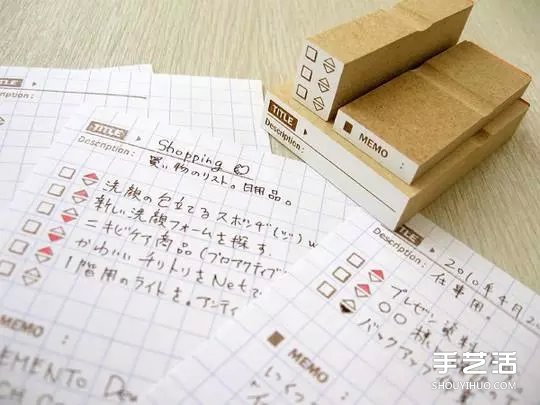 TITLE
Description:
MEMO:
TITLE
Description:
TITLE Shopping
Description: 買い物のリスト。日用品。
洗顔の泡立てるスポンジ
新しい洗顔フォームを探す。
ニキビケイ商品(プロアクティブ
かわいいチリトリをNetで
1階用のライトを。アンティ
MEMO:
TITLE 2010年4月2
Description: 仕事用
プレゼン
〇〇様
バックアップ
MEMO
手艺活
SHOUYIHUO.COM